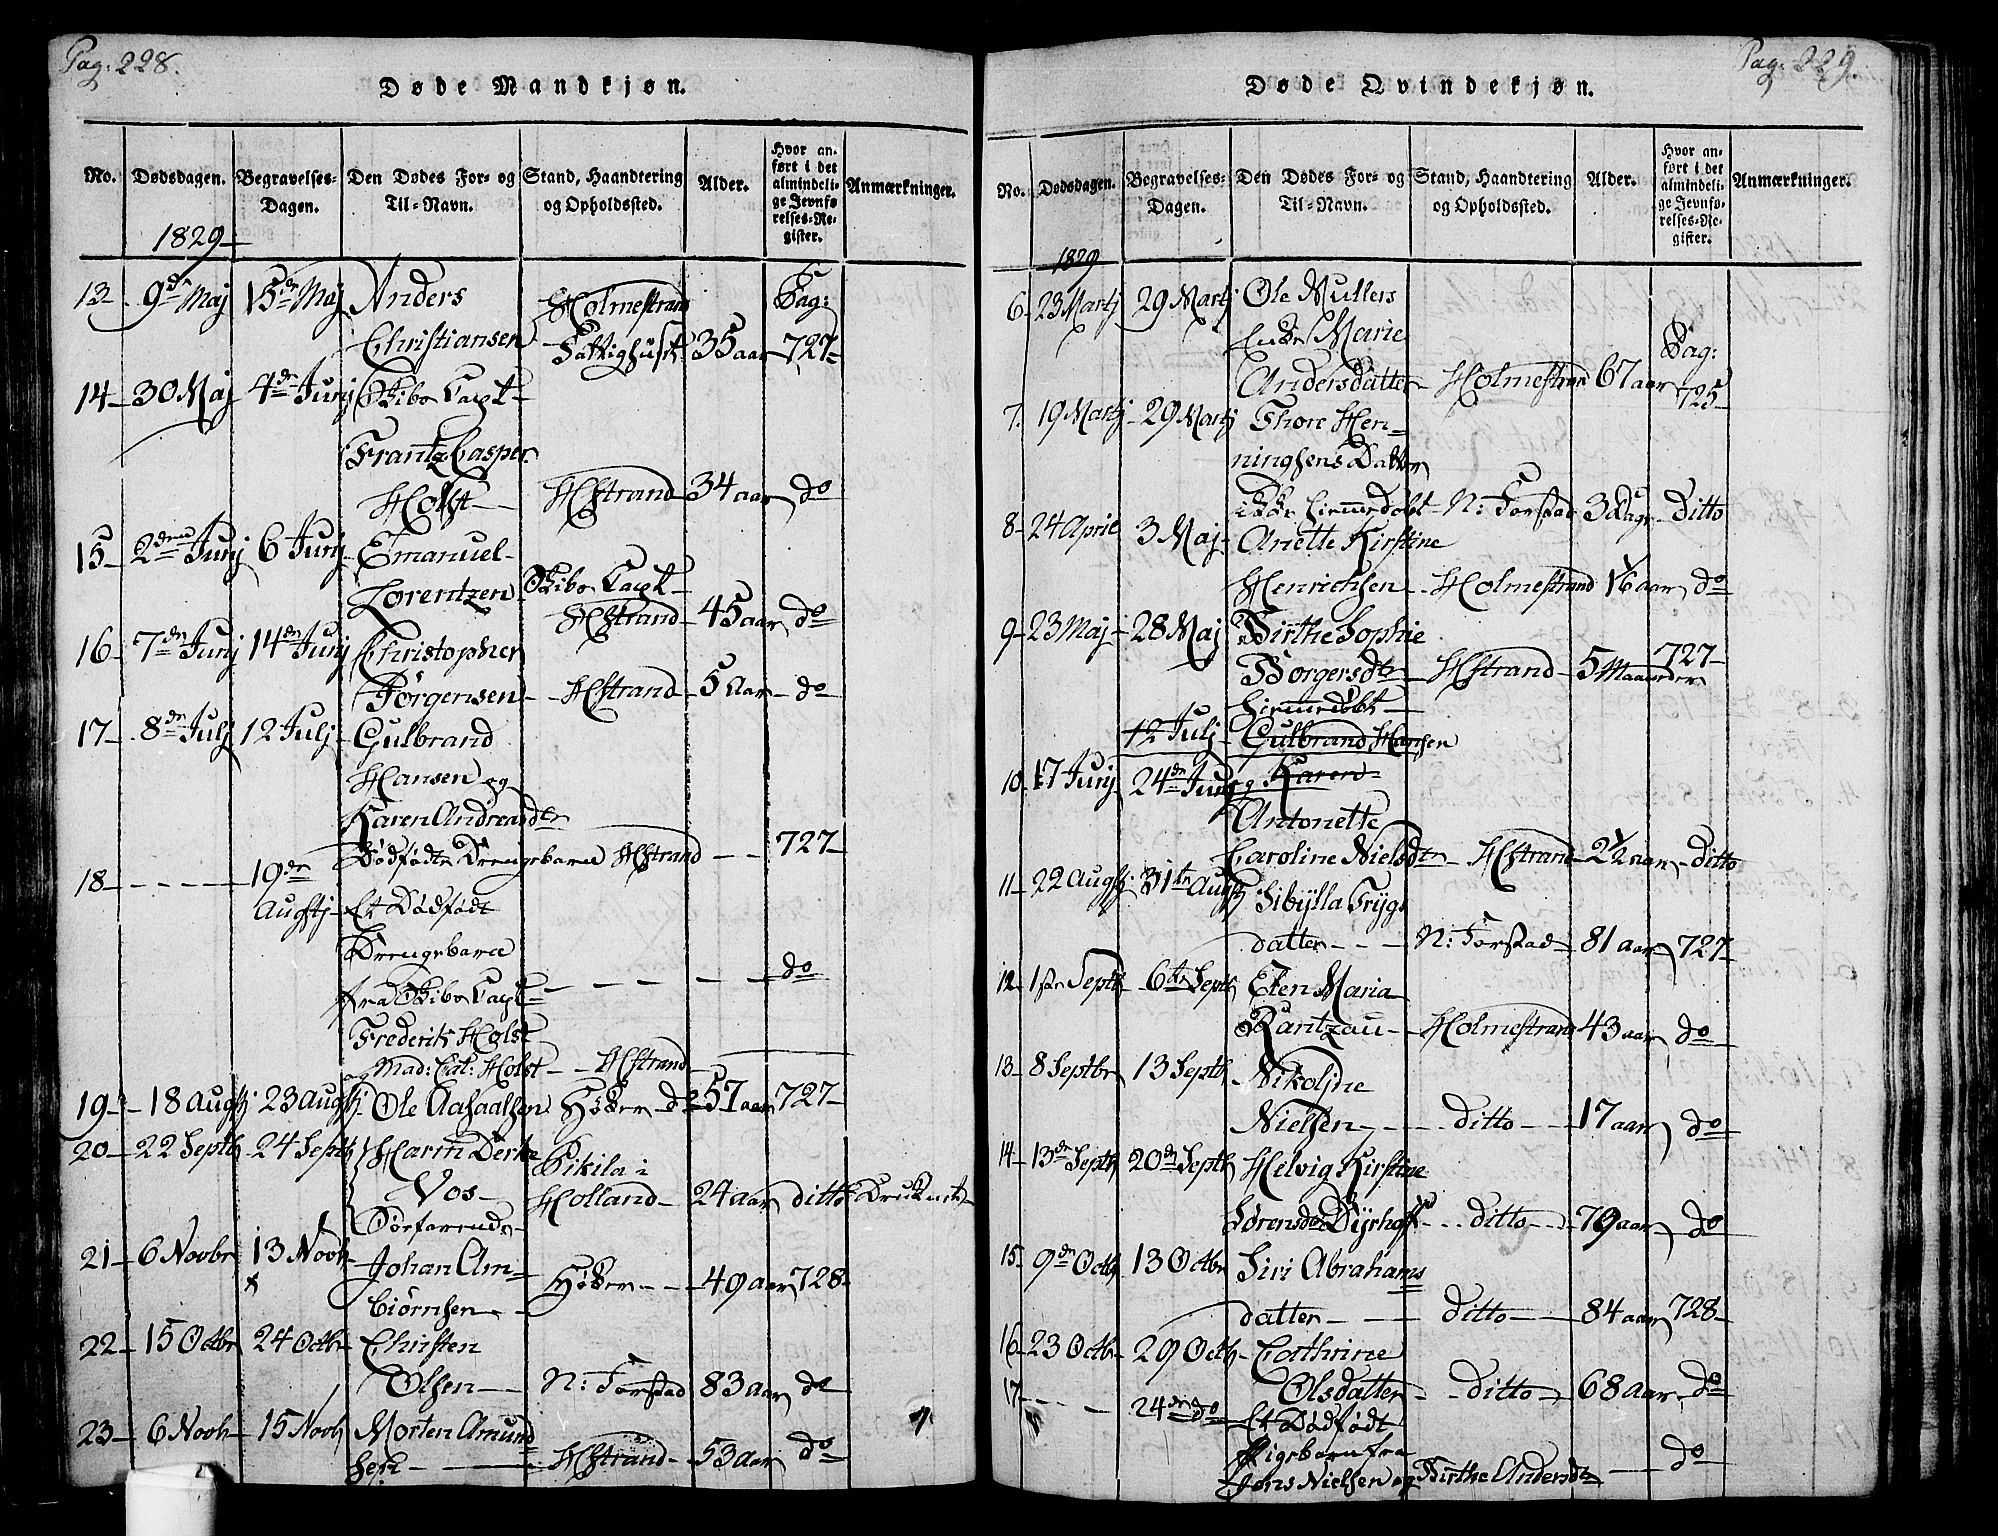 Pag: 228.
Døde Mandkjøn.
No. Dødsdagen. Begravelses-Dagen. Den Dødes For- og Til-Navn. Stand, Haandtering og Opholdssted. Alder. Hvor anført i det almindelige Jevnførelses-Register. Anmærkninger.
1829
13 9de Maj 15de Maj Anders Holmestrand Pag:
Christiansen Fattighuset 35 aar 727
14 30 Maj 4de Junj
Frantz Casper
Holst HStrand 34 aar do
15 2den Junj 6 Junj Emanuel
Lorentzen
HStrand 45 aar do
16 7de Junj 14de Junj Christopher
Jørgensen HStrand 5 Aar do
17 8de Julj 12 Julj Gulbrand
Hansen og
Karen Andreasdtr
Dødfødte Drengebarn HStrand 727
18 19de
Augstj Et Dødfødt
Drengebarn
fra do
Frederik Holst
og Mad: Cat: Holst HStrand
19 18 Augstj 23 Augstj Ole Aasaalsen Høker do 57 aar 727
20 22 Septbr 24 Septbr Harm Derke
Vos Holland 24 aar ditto Druknet
Søefarende
21 6 Novbr 13 Novbr Johan Am
biørnsen Høker 49 aar 728
22 15 Octbr 24 Octbr Christen
Olsen N: Forstad 83 aar do
23 6 Novbr 15 Novbr Morten Amund
sen HStrand 53 aar do
Pag: 229.
Døde Qvindekjøn.
No. Dødsdagen. Begravelses-Dagen. Den Dødes For- og Til-Navn. Stand, Haandtering og Opholdssted. Alder. Hvor anført i det almindelige Jevnførelses-Register. Anmærkninger.
1829
6 23 Martj 29 Martj Ole Mullers
Enke Marie Pag:
Andersdatter Holmestrand 67 aar 725
7. 19 Martj 29 Martj Thore Hen-
ningsens Datter
hiemmedøbt N: Forstad 3 Dage Ditto
8 24 April 3 Maj Anette Kirstine
Henrichsen Holmestrand 1/6 aar do
9 23 Maj 28 Maj Birthe Sophie
Borgersdtr HStrand 5 Maaneder 727
hiemmedøbt
12 Julj Gulbrand Hansen
10 17 Junj 24de Junj og Karen
Antonette
Caroline Nielsdtr HStrand 2 1/2 aar ditto
11 22 Augstj 31te Augstj Sibylla Trygs
datter N: Forstad 81 aar 727
12 1ste Septbr 6te Septbr Elen Maria
Rantzau Holmestrand 43 aar do
13 8 Septbr 13 Septbr Nikoljne
Nielsen ditto 17 aar do
14 13de Septbr 20de Septbr Helvig Kirstine
Sørensdr Dyrhoff ditto 79 aar do
15 9de Octbr 13 Octbr Siri Abrahams
datter Ditto 84 aar 728
16 23 Octbr 29 Octbr Cathrine
Olsdatter ditto 68 aar do
17 24de do Et Dødfødt
Pigebarn fra do
Jens Nielsen og Birthe Andersdtr